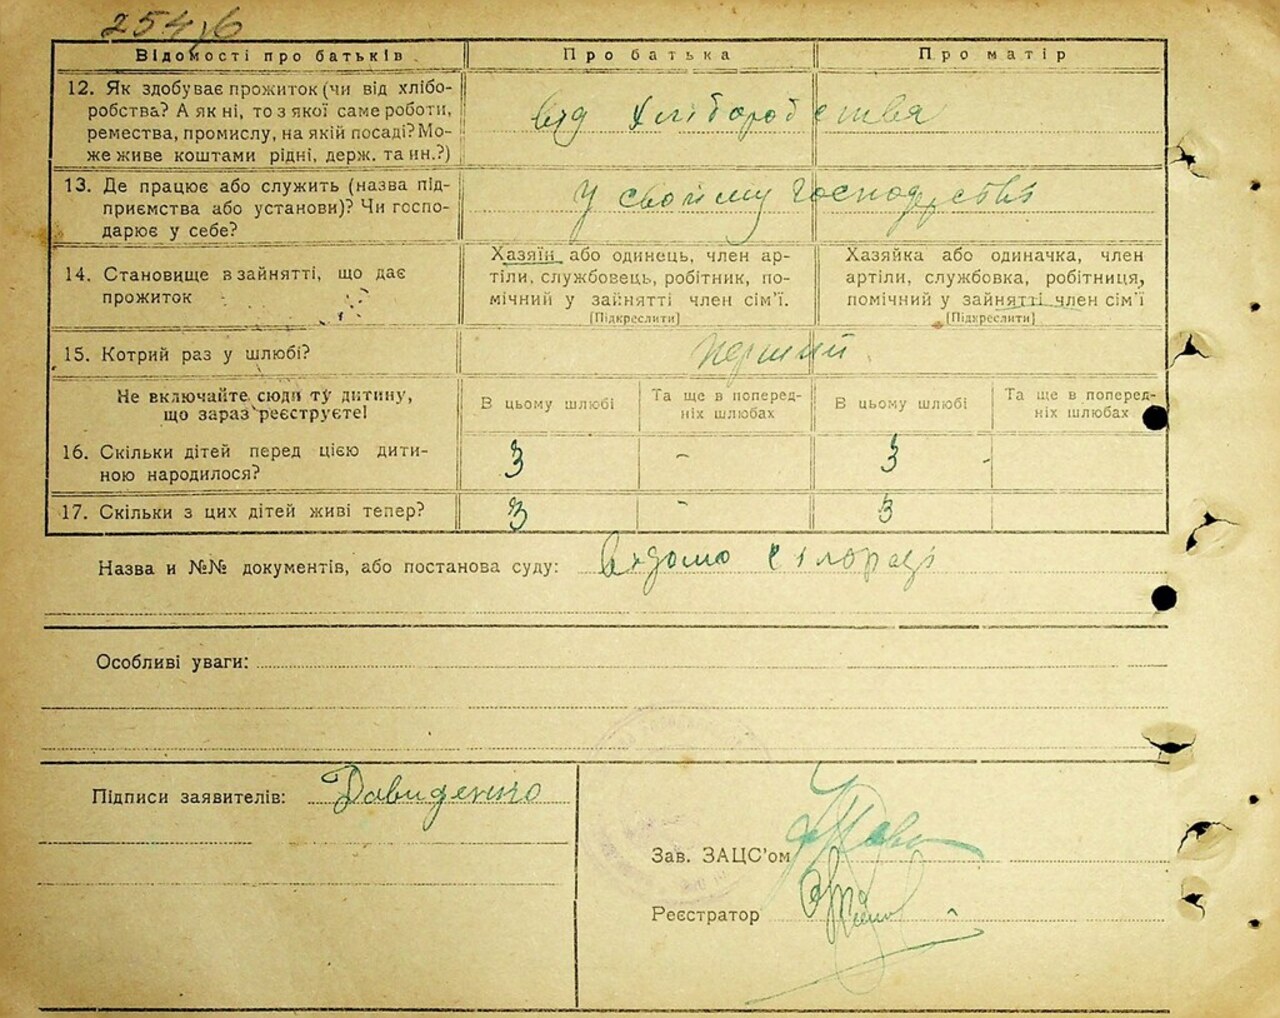 Відомості про батьків
Про батька
Про матір
12. Як здобуває прожиток (чи від хлібо-
робства? А як ні, то з якої саме роботи,
ремества, промислу, на якій посаді? Мо-
же живе коштами рідні, держ. та ин.?)
від хліборобства
13. Де працює або служить (назва під-
приємства або установи)? Чи госпо-
дарює у себе?
У своїму господарстві
14. Становище в зайнятті, що дає
прожиток
Хазяїн або одинець, член ар-
тіли, службовець, робітник, по-
мічний у зайнятті член сім'ї.
[Підкреслити]
Хазяйка або одиначка, член
артіли, службовка, робітниця,
помічний у зайнятті член сім'ї
[Підкреслити]
15. Котрий раз у шлюбі?
перший
Не включайте сюди ту дитину,
що зараз реєструєте!
В цьому шлюбі
Та ще в поперед-
ніх шлюбах
В цьому шлюбі
Та ще в поперед-
ніх шлюбах
16. Скільки дітей перед цією дити-
ною народилося?
3 - 3 -
17. Скільки з цих дітей живі тепер?
3 - 3
Назва и №№ документів, або постанова суду: відомо сілораді
Особливі уваги:
Підписи заявителів: Давиденко
Зав. ЗАЦС'ом
Реєстратор